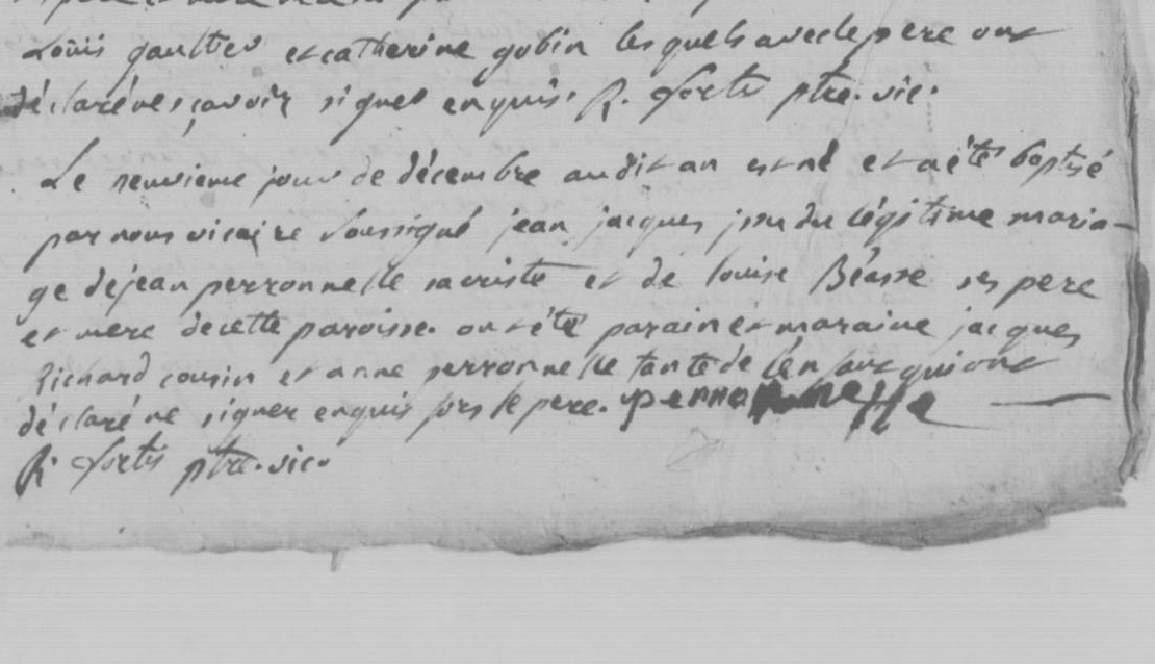 Loüis gaultier et catherine gobin lesquels avec le pere ont
déclaré ne sçavoir signer enquis. R. fortis ptre. vic.
Le neuvieme jour de décembre audit an est né et a été baptisé
par nous vicaire soussigné jean jacques issu du légitime maria-
ge de jean perronnelle sacriste et de louise Béasse ses pere
et mere de cette paroisse. ont été parain et maraine jacques
Richard cousin et anne perronnelle tante de l'enfant qui ont
déclaré ne signer enquis fors le pere.
R. fortis ptre. vic.